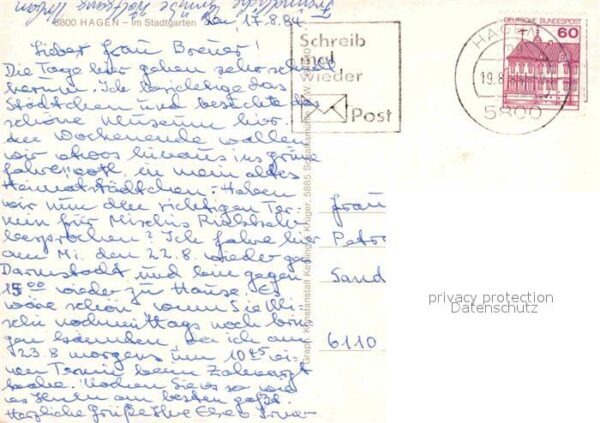 Freundliche Grüße Wolfgang
5800 HAGEN - Im Stadtgarten
17.8.84
Lieber Frau Breuer!
Die Tage hier gehen sehr schnell
herum. Ich besichtige das
Städtchen und besuchte das
schöne Museum hier.
Am Wochenende wollen
wir etwas hinaus ins grüne
fahren, evtl. in mein altes
Heimatstädtchen. Haben
wir nun den richtigen Ter-
min für Mischis
besprochen? Ich fahre hier
am Mi. den 22.8. wieder gen
Darmstadt und bin gegen
15 00 wieder zu Hause. Es
wäre schön wenn Sie Mi-
schi nachmittags noch brin-
gen könnten. Da ich am
23.8 morgens um 10 45 ei-
nen Termin beim Zahnarzt
habe. Machen Sie es so wie
es Ihnen am besten paßt.
Herzliche Grüße Ihre
Schreib
mal
wieder
Post
HAGEN
19.8
5800
DEUTSCHE BUNDESPOST
60
Frau
Petr
Sand
6110
Graph. Kunstanstalt Krüger, 5885 Schalksmühle
privacy protection
Datenschutz